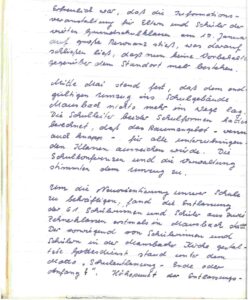 Erfreulich war, daß die Informations-
veranstaltung für Eltern und Schüler der
vierten Grundschulklassen am 19. Januar
auf große Resonanz stieß, was darauf
schließen ließ, dass nun keine Vorbehalte
gegenüber dem Standort mehr bestehen.
Mitte Mai stand fest, daß dem end-
gültigen Umzug ins Schulgebäude
Maumbach nichts mehr im Wege lag.
Die Schulleiter beider Schulformen hatten
berechnet, daß das Raumangebot - wenn
auch knapp - für alle unterzubringen-
den Klassen ausreichen würde. Die
Schulkonferenzen und die Verwaltung
stimmten dem Umzug zu.
Um die Neuorientierung unserer Schule
zu bekräftigen, fand die Entlassung
der 61 Schülerinnen und Schüler aus den
Zehnerklassen erstmals in statt.
Der vorwiegend von Schülerinnen und
Schülern in der Kirche gestal-
tete Gottesdienst stand unter dem
Motto "Schulentlassung - Ende oder
Anfang". Höhepunkt der Entlassungs-